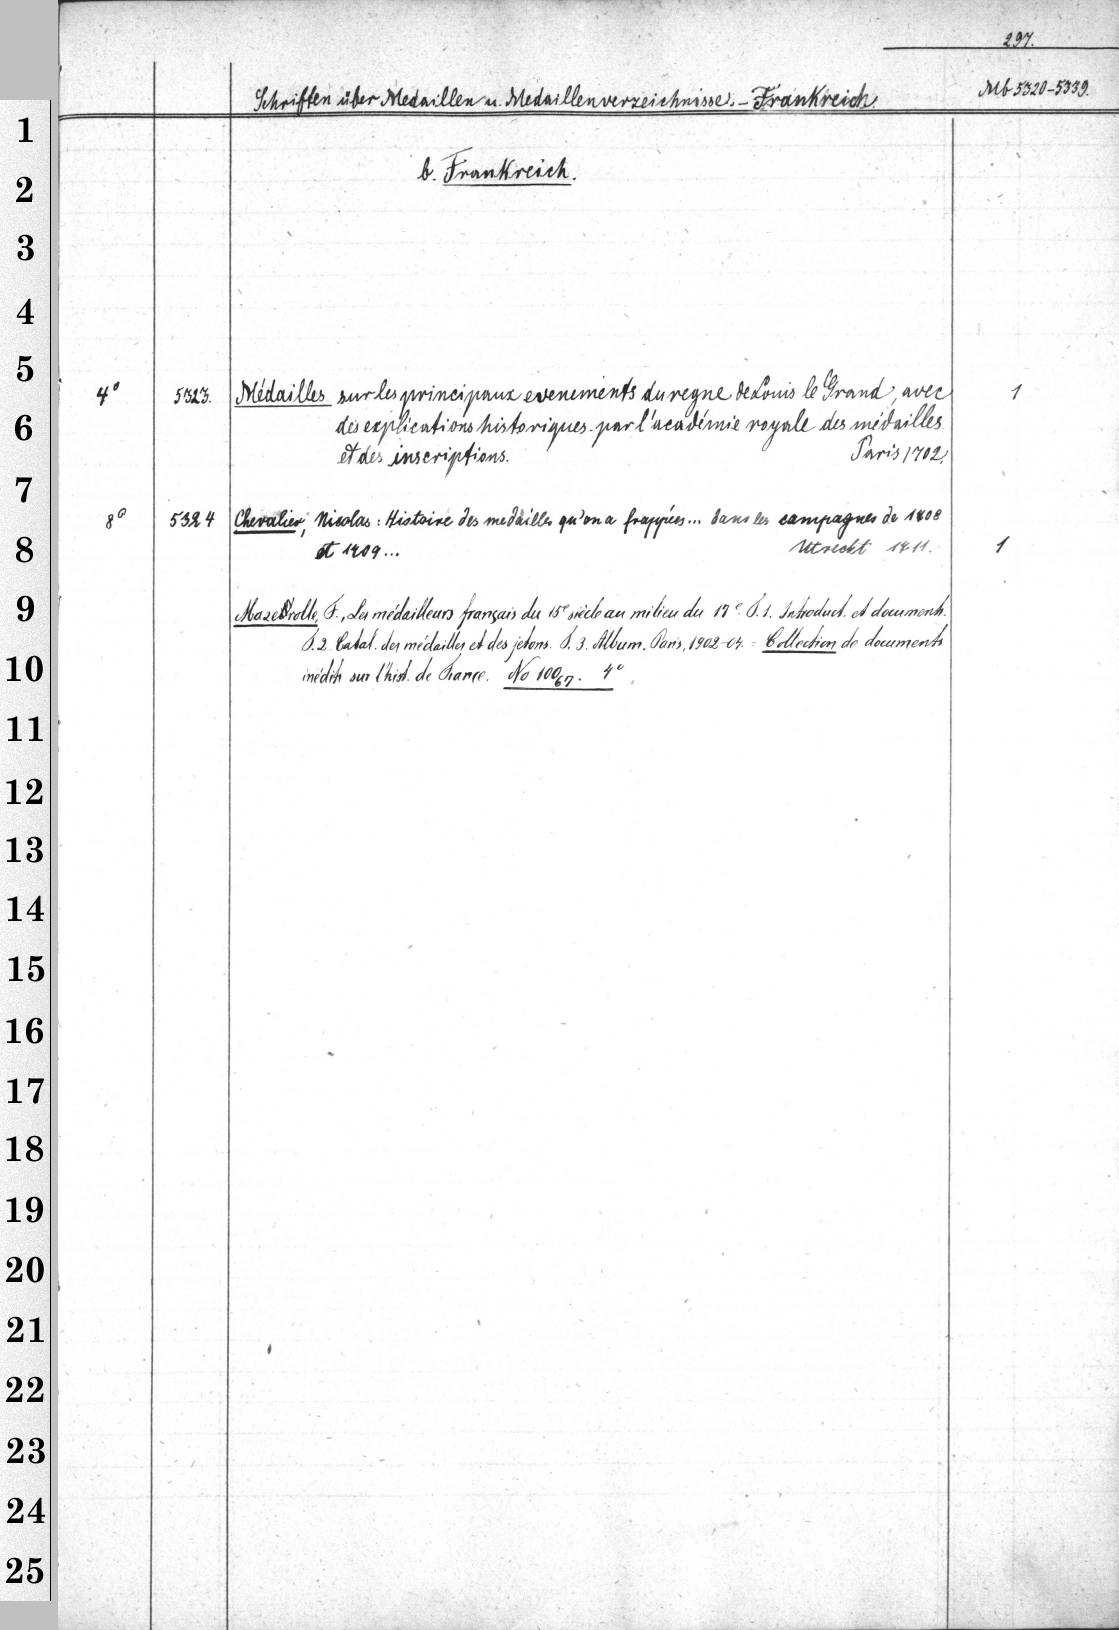 297.
Schriften über Medaillen u. Medaillenverzeichnisse. – Frankreich
Mb 5320–5339.
b. Frankreich.
4° 5323. Médailles sur les principaux evenements du regne de Louis le Grand, avec 1
des explications historiques. par l'académie royale des médailles
et des inscriptions. Paris 1702.
8° 5324 Chevalier, Nicolas: Histoire des medailles qu'on a frappées... dans les campagnes de 1708
et 1709... Utrecht 1711. 1
Mazerolle, F., Les médailleurs français du 15e siècle au milieu du 17e. T. 1. Introduct. et documents.
T. 2. Catal. des médailles et des jetons. T. 3. Album. Paris, 1902–04. = Collection de documents
inédits sur l'hist. de France. No 100/67. 4°
1
2
3
4
5
6
7
8
9
10
11
12
13
14
15
16
17
18
19
20
21
22
23
24
25